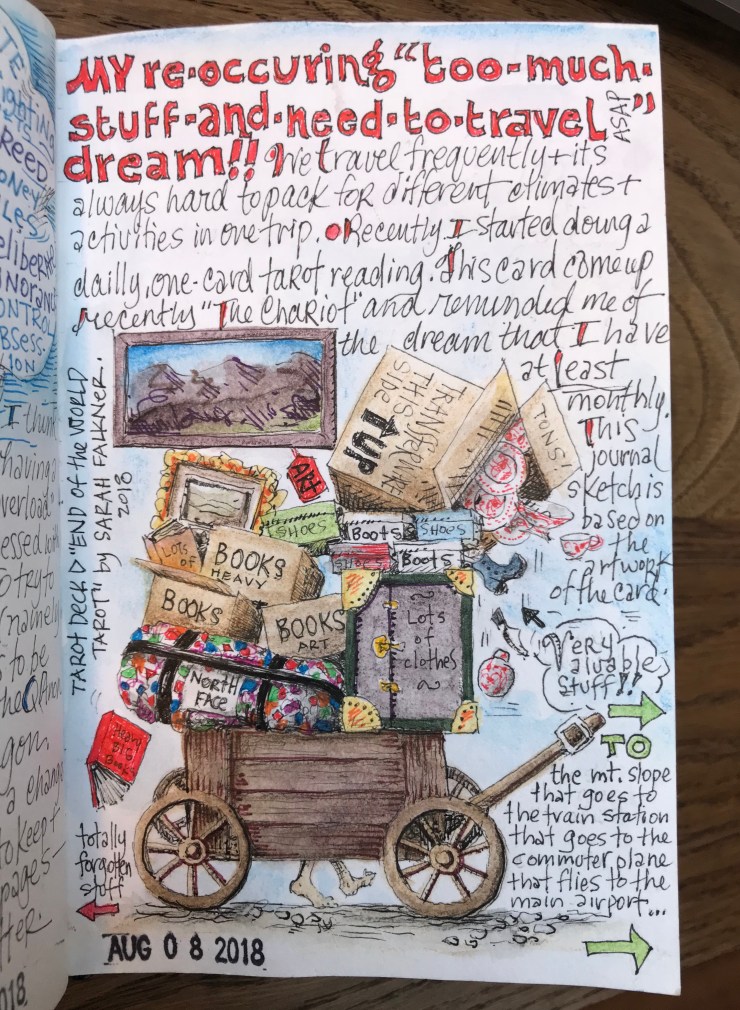 TE
ighting
REED
ONEY
LES
eliberat
ONTROL
BSESS-
ION
I think
having
verload"
essed with
o try to
(namely
s to be
gon.
a chang
to keep
pages-
tter.
018
MY re-occuring "too-much-
stuff-and-need-to-travel ASAP"
dream!! We travel frequently + its
always hard to pack for different climates +
activities in one trip. Recently I started doing a
dailly, one-card tarot reading. This card come up
recently "The Chariot" and reminded me of
the dream that I have
at least
monthly.
This
journal
sketch is
based on
the
artwork
of the card.
TAROT DECK "END OF the WORLD
TAROT" by SARAH FALKNER.
2018
TRANSFERWARE
THIS
side
UP
TONS!
ART
SHOES
Boots
SHOES
SHOES
Boots
Lots
of
BOOKS
HEAVY
BOOKS
BOOKS
ART
Lots
of
clothes
NORTH
FACE
Very
valuable
stuff!!
Heavy
BIG
Book
TO
the mt. slope
that goes to
the train station
that goes to the
commuter plane
that flies to the
main airport...
totally
forgotten
stuff
AUG 08 2018